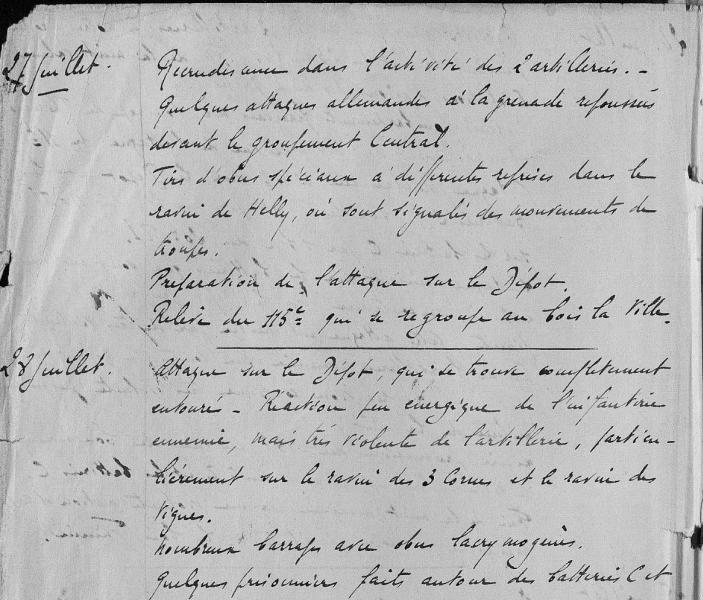 27 Juillet.
Recrudescence dans l'activité des 2 artilleries. -
Quelques attaques allemandes à la grenade repoussées
devant le groupement Central.
Tirs d'obus spéciaux à différentes reprises dans le
ravin de Helly, où sont signalés des mouvements de
troupes.
Préparation de l'attaque sur le Dépot.
Relève du 115e qui se regroupe au bois la Ville.
28 Juillet.
Attaque sur le Dépot, qui se trouve complètement
entouré - Réaction peu énergique de l'infanterie
ennemie, mais très violente de l'artillerie, particu-
lièrement sur le ravin des 3 Cornes et le ravin des
Vignes.
Nombreux barrages avec obus lacrymogènes.
Quelques prisonniers faits autour des batteries C et